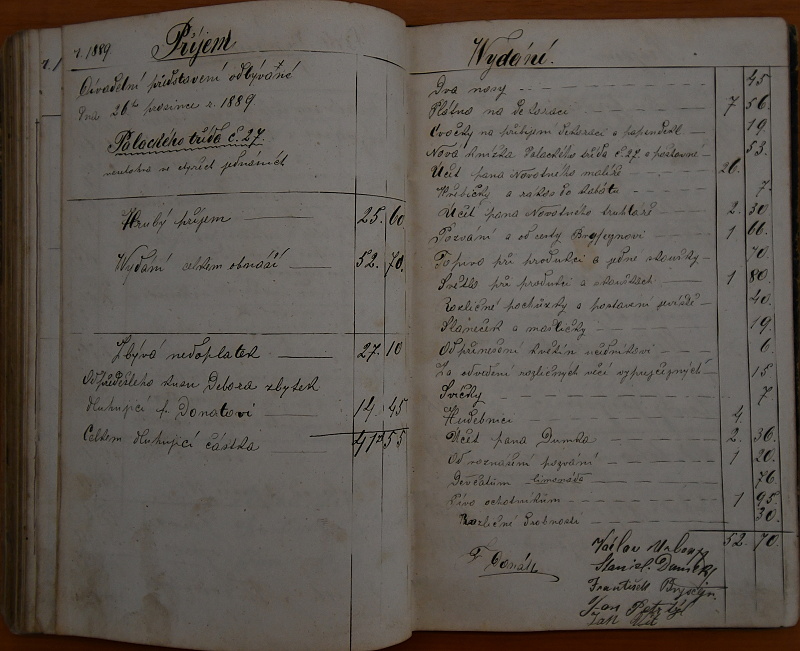 r. 1
r. 1889
Příjem
Divadelní představení odbývané
dne 26ho prosince r. 1889.
Palackého třída č. 27.
veselohra ve čtyřech jednáních
Hrubý příjem 25. 60
Vydání celkem obnáší 52. 70.
Zbývá nedoplatek 27. 10
Od předešlého kusu Debora zbytek
dluhující p. Donatovi 14. 45
Celkem dluhující částka 41 55
Vydání.
Dva nosy 45
Plátno na dekoraci 7 56.
Cvočky na přibijení dekorací a papendekl 19.
Nová knížka Palackého třída č. 27. s poštovné 53.
Účet pana Novotného malíře 20.
Hřebíčky a rakos do kabátu 7.
Účet pana Novotného truhláře 2. 30
Pozvání a od cesty 1 66.
Topivo při produkci a jedné zkoušky 70.
Světlo při produkci a zkouškách 1 80
Rozličné pochůzky a postavení jeviště 40.
Sláneček a mašličky 19.
Od přenesení květin 6.
Za odvedení rozličných věcí vypůjčených 15
Svíčky 7
Hudebníci 4.
Účet pana Dumka 2. 36.
Od roznášení pozvání 1 20.
Děvčatům limonáda 76.
Pivo ochotníkům 1 95
Rozličné drobnosti 30.
52. 70
F. Donát
Václav
Stanisl.
František
Jan
Jan